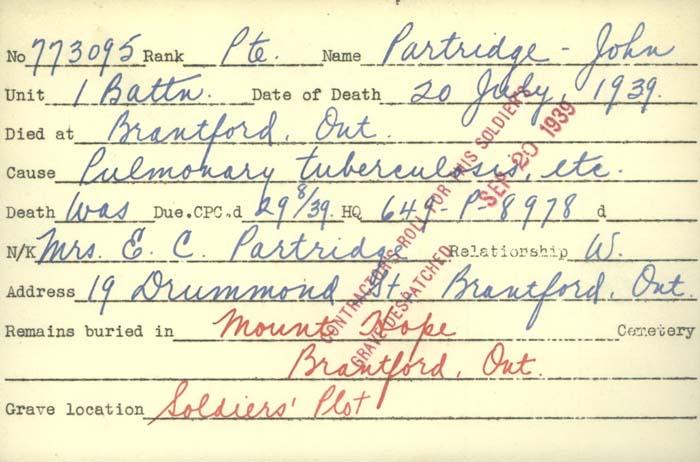 No 773095 Rank Pte. Name Partridge - John
Unit 1 Battn. Date of Death 20 July, 1939.
Died at Brantford, Ont.
Cause Pulmonary tuberculosis, etc.
Death Was Due.CPC.d 29 8/39. HQ 649-P-8978 d
N/K Mrs. E. C. Partridge Relationship W.
Address 19 Drummond St. Brantford, Ont.
Remains buried in Mount Hope Cemetery
Brantford, Ont.
Grave location Soldiers' Plot
CONTRACTOR'S ROLL FOR THIS SOLDIER'S
GRAVE DESPATCHED SEP 20 1939